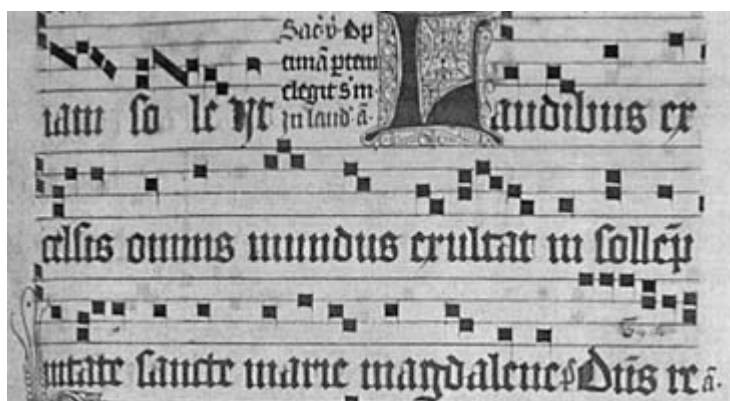 Op
timā ptem
elegit
In laud ā.
iam so le
Laudibus ex
celsis omnis mundus exultat in sollēp
nitate sancte marie magdalene Dn̄s re ā.